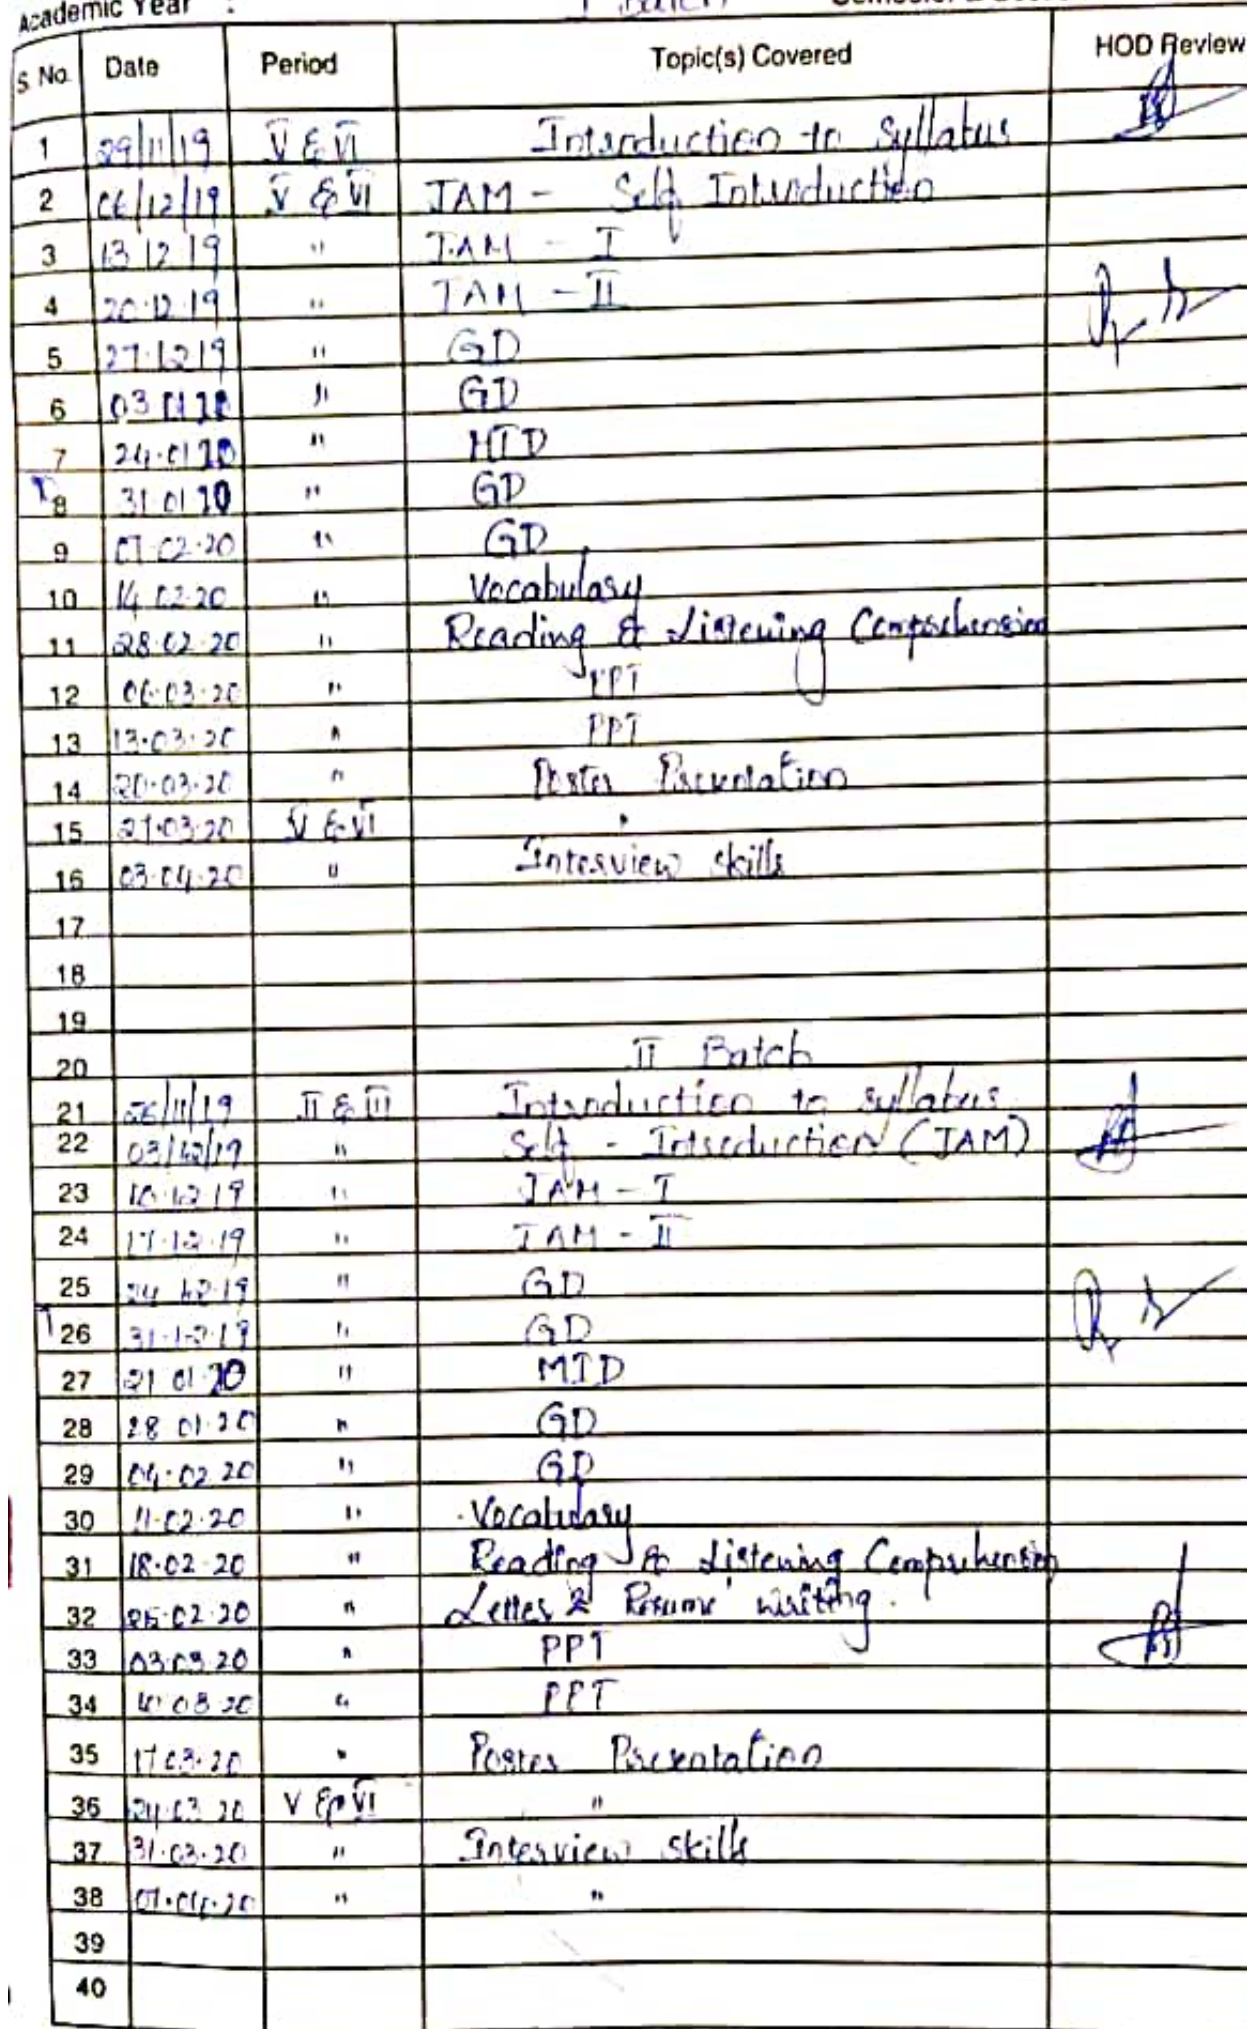 Academic Year :
I Batch
S. No. Date Period Topic(s) Covered HOD Review
1 29/11/19 V & VI Introduction to Syllabus
2 06/12/19 V & VI JAM - Self Introduction
3 13.12.19 " JAM - I
4 20.12.19 " JAM - II
5 27.12.19 " GD
6 03.01.20 " GD
7 24.01.20 " MTD
8 31.01.20 " GD
9 07.02.20 " GD
10 14.02.20 " Vocabulary
11 28.02.20 " Reading & Listening Comprehension
12 06.03.20 " PPT
13 13.03.20 " PPT
14 20.03.20 " Poster Presentation
15 27.03.20 V & VI "
16 03.04.20 " Interview skills
17
18
19
20 II Batch
21 26/11/19 II & III Introduction to syllabus
22 03/12/19 " Self - Introduction (JAM)
23 10.12.19 " JAM - I
24 17.12.19 " JAM - II
25 24.12.19 " GD
26 31.12.19 " GD
27 21.01.20 " MTD
28 28.01.20 " GD
29 04.02.20 " GD
30 11.02.20 " Vocabulary
31 18.02.20 " Reading & Listening Comprehension
32 25.02.20 " Letter & Resume writing.
33 03.03.20 " PPT
34 10.03.20 " PPT
35 17.03.20 " Poster Presentation
36 24.03.20 V & VI "
37 31.03.20 " Interview skills
38 07.04.20 " "
39
40